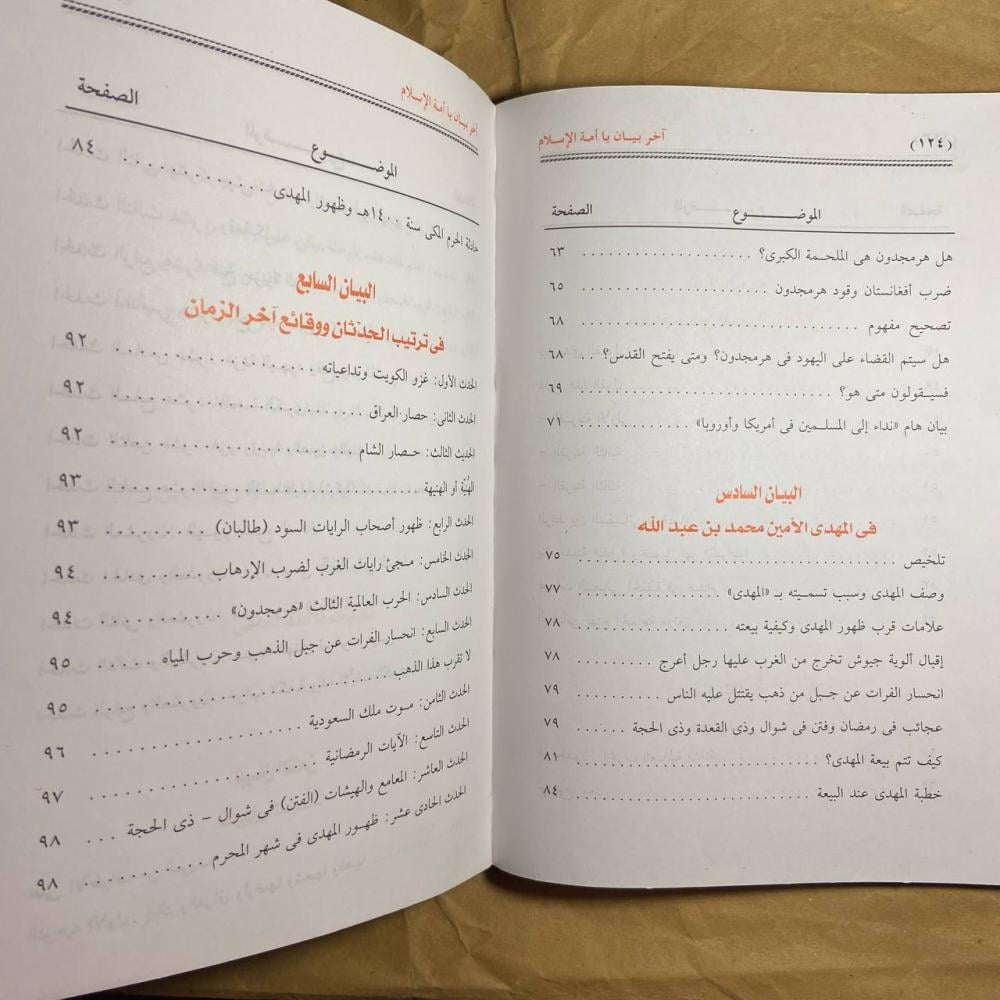 (١٢٤) آخر بيان يا أمة الإسلام
الموضـــــــوع الصفحة
هل هرمجدون هى الملحمة الكبرى؟ ............ ٦٣
ضرب أفغانستان وقود هرمجدون ............ ٦٥
تصحيح مفهوم ............ ٦٨
هل سيتم القضاء على اليهود فى هرمجدون؟ ومتى يفتح القدس؟ ... ٦٨
فسيـقـولون متى هو؟ ............ ٦٩
بيان هام «نداء إلى المسلـمـين فى أمريكا وأوروبا» ... ٧١
البيان السادس
فى المهدى الأمين محمد بن عبد الله
تلخيص ............ ٧٥
وصف المهدى وسبب تسمـيته بـ «المهدى» ............ ٧٧
علامات قرب ظهور المهدى وكيفية بيعته ............ ٧٨
إقبال ألوية جيوش تخرج من الغرب عليها رجل أعرج ......... ٧٨
انحسار الفرات عن جبـل من ذهب يقتتل عليه الناس .......... ٧٩
عجائب فى رمضان وفتن فى شوال وذى القعدة وذى الحجة ... ٧٩
كيف تتم بيعة المهدى؟ ............ ٨١
خطبة المهدى عند البيعة ............ ٨٤
آخر بيـان يا أمة الإسلام
الموضـــــوع الصفحة
حادثة الحرم المكى سنة ١٤٠٠هـ وظهور المهدى ............ ٨٤
البيان السابع
فى ترتيب الحِدثان ووقائع آخر الزمان
الحدث الأول: غزو الكويت وتداعياته ............ ٩٢
الحدث الثانى: حصار العراق ............ ٩٢
الحديث الثالث: حـصار الشام ............ ٩٢
الهُنَيَّة أو الهنيهة ............ ٩٣
الحدث الرابع: ظهور أصحاب الرايات السود (طالبان) ......... ٩٣
الحدث الخامس: مـجئ رايات الغرب لضرب الإرهاب ......... ٩٤
الحدث السادس: الحرب العالمية الثالث «هرمجدون» ......... ٩٤
الحدث السابع: انحسار الفرات عن جبل الذهب وحرب المياه ..... ٩٥
لا تقرب هذا الذهب ............ ٩٥
الحدث الثامن: مـوت ملك السعودية ............ ٩٦
الحدث التاسع: الآيات الرمضانية ............ ٩٧
الحدث العاشر: المعامع والهيشات (الفتن) فى شوال - ذى الحجة ... ٩٨
الحدث الحادى عشر: ظهـور المهدى فى شهر المحرم ............ ٩٨